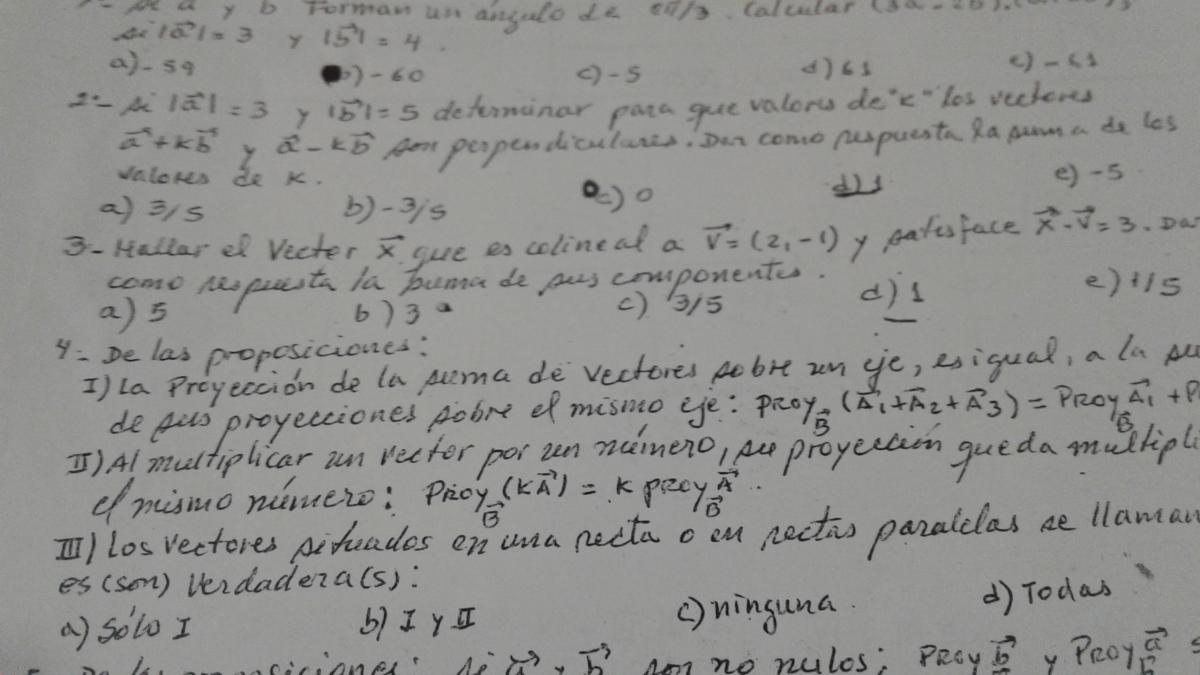 y b Forman un ángulo de 2π/3. Calcular
si |a⃗| = 3 y |b⃗| = 4.
a) -59 b) -60 c) -5 d) 61 e) -61
2.- si |a⃗| = 3 y |b⃗| = 5 determinar para que valores de "K" los vectores
a⃗+kb⃗ y a⃗-kb⃗ son perpendiculares. Dar como respuesta la suma de los
valores de K.
a) 3/5 b) -3/5 c) 0 d) 1 e) -5
3- Hallar el Vector x⃗ que es colineal a V⃗ = (2,-1) y satisface x⃗.V⃗ = 3. Da
como respuesta la suma de sus componentes.
a) 5 b) 3 c) 3/5 d) 1 e) 1/5
4- De las proposiciones:
I) La Proyección de la suma de vectores sobre un eje, es igual, a la su
de sus proyecciones sobre el mismo eje: Proy_B⃗ (A⃗₁+A⃗₂+A⃗₃) = Proy_B⃗ A⃗₁ + P
II) Al multiplicar un vector por un número, su proyección queda multipli
el mismo número: Proy_B⃗ (KA⃗) = K proy_B⃗ A⃗.
III) Los vectores situados en una recta o en rectas paralelas se llaman
es(son) Verdadera(s):
a) Sólo I b) I y II c) ninguna. d) Todas
proposiciones: si a⃗ y b⃗ son no nulos; Proy b⃗ y Proy_b⃗ a⃗